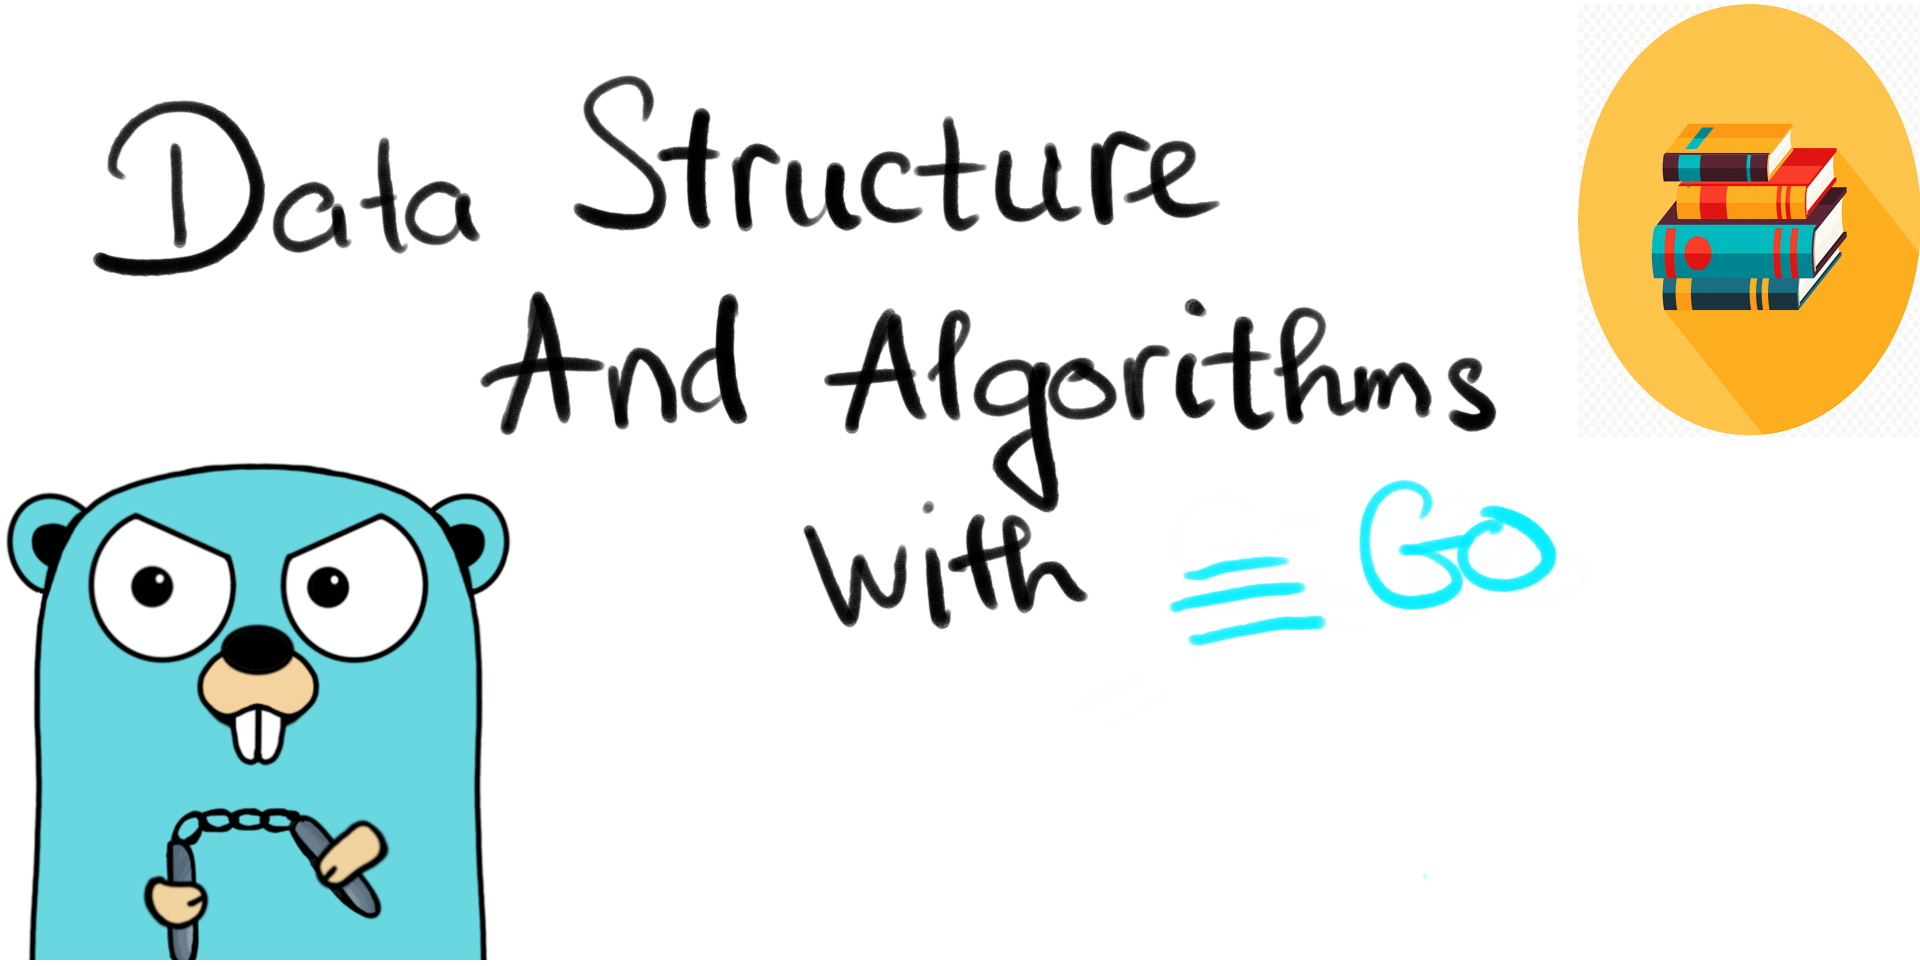 Data Structure
And Algorithms
with GO